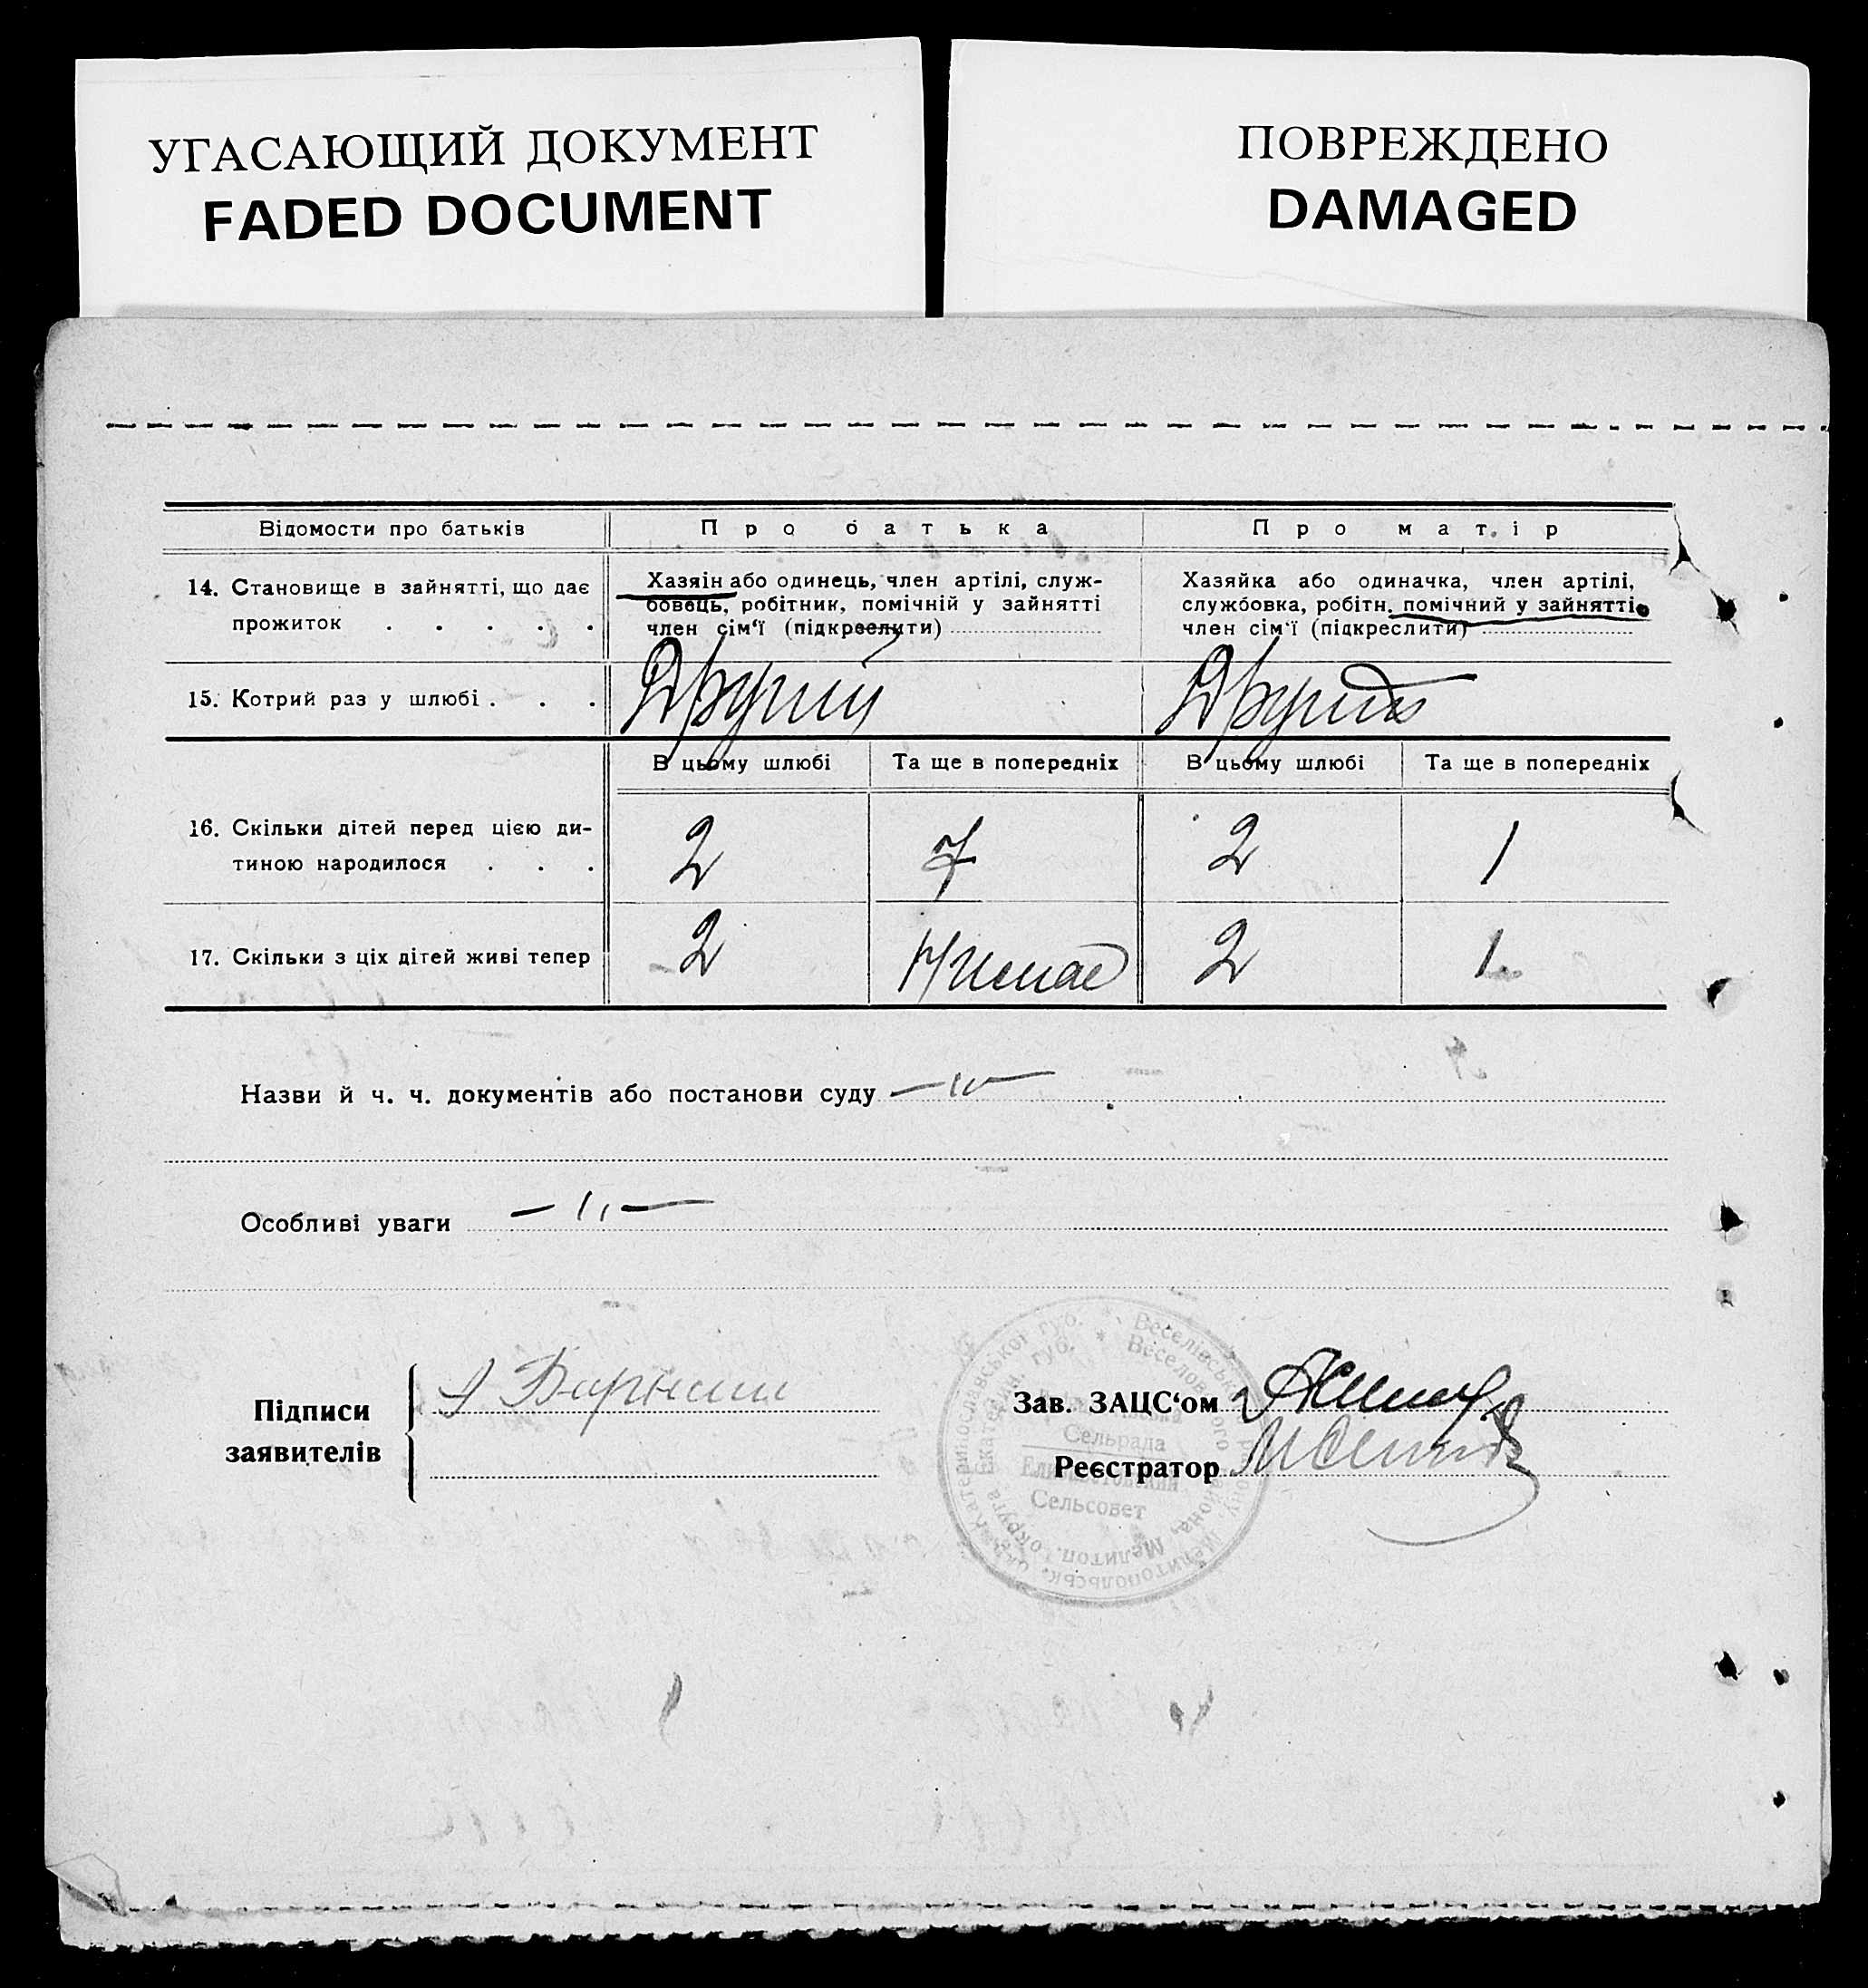 УГАСАЮЩИЙ ДОКУМЕНТ
FADED DOCUMENT
ПОВРЕЖДЕНО
DAMAGED
Відомости про батьків
Про батька
Про матір
14. Становище в зайнятті, що дає
прожиток . . . . .
Хазяін або одинець, член артілі, служ-
бовець, робітник, помічній у зайнятті
член сім‘ї (підкреслити)
Хазяйка або одиначка, член артілі,
службовка, робітн. помічний у зайнятті
член сім‘ї (підкреслити)
15. Котрий раз у шлюбі . . .
Другий
Другий
В цьому шлюбі
Та ще в попередніх
В цьому шлюбі
Та ще в попередніх
16. Скільки дітей перед цією ди-
тиною народилося . . .
2
7
2
1
17. Скільки з ціх дітей живі тепер
2
Нимає
2
1.
Назви й ч. ч. документів або постанови суду —〃—
Особливі уваги —〃—
Підписи
заявителів
Зав. ЗАЦС‘ом
Реєстратор
Катеринославської губ. * Веселівськ. району, Мелитопольськ. окр.
Екатерин. губ. * Веселовского района, Мелитоп. округа
Сельрада
Елизаветовский
Сельсовет